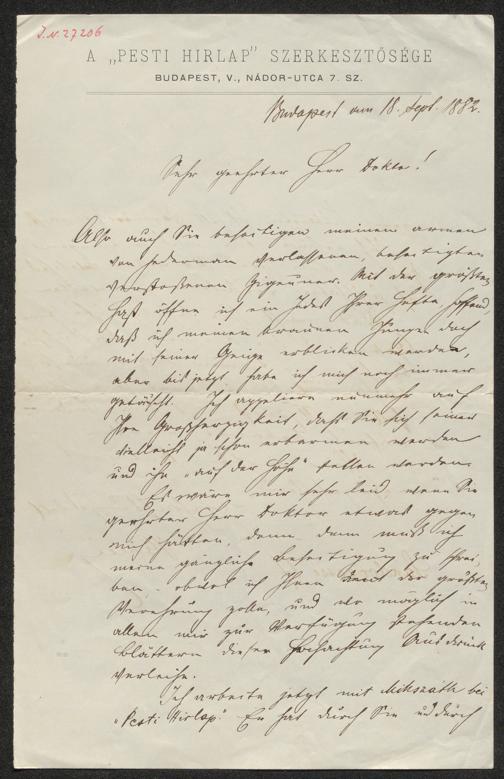 J.N. 27206
A „PESTI HIRLAP" SZERKESZTŐSÉGE
BUDAPEST, V., NÁDOR-UTCA 7. SZ.
Budapest am 18. Sept. 1882.
Sehr geehrter Herr Doktor!
Also auch Sie beseitigen meinen armen
von jedermann verlassenen, beseitigten
verstoßenen Zigeuner. Mit der größten
Hast öffne ich ein jedes Ihrer Hefte hoffend,
daß ich meinen braunen Jungen doch
mit seiner Geige erblicken werde,
aber bis jetzt habe ich mich noch immer
getäuscht. Ich appeliere nunmehr auf
Ihre Großherzigkeit, daß Sie sich seiner
vielleicht ja schon erbarmen werden
und ihn „auf der Höhe" stellen werden.
Es wäre mir sehr leid, wenn Sie
geehrter Herr Doktor etwas gegen
mich hätten, denn dem muß ich
meine gängliche Beseitigung zu schrei-
ben - obwol ich Ihnen der größten
Verehrung zolle, und wo möglich in
allen mir zur Verfügung stehenden
Blättern dieser Hochachtung Ausdruck
verleihe.
Ich arbeite jetzt mit Mikszáth bei
„Pesti Hirlap". Er hat durch Sie und durch